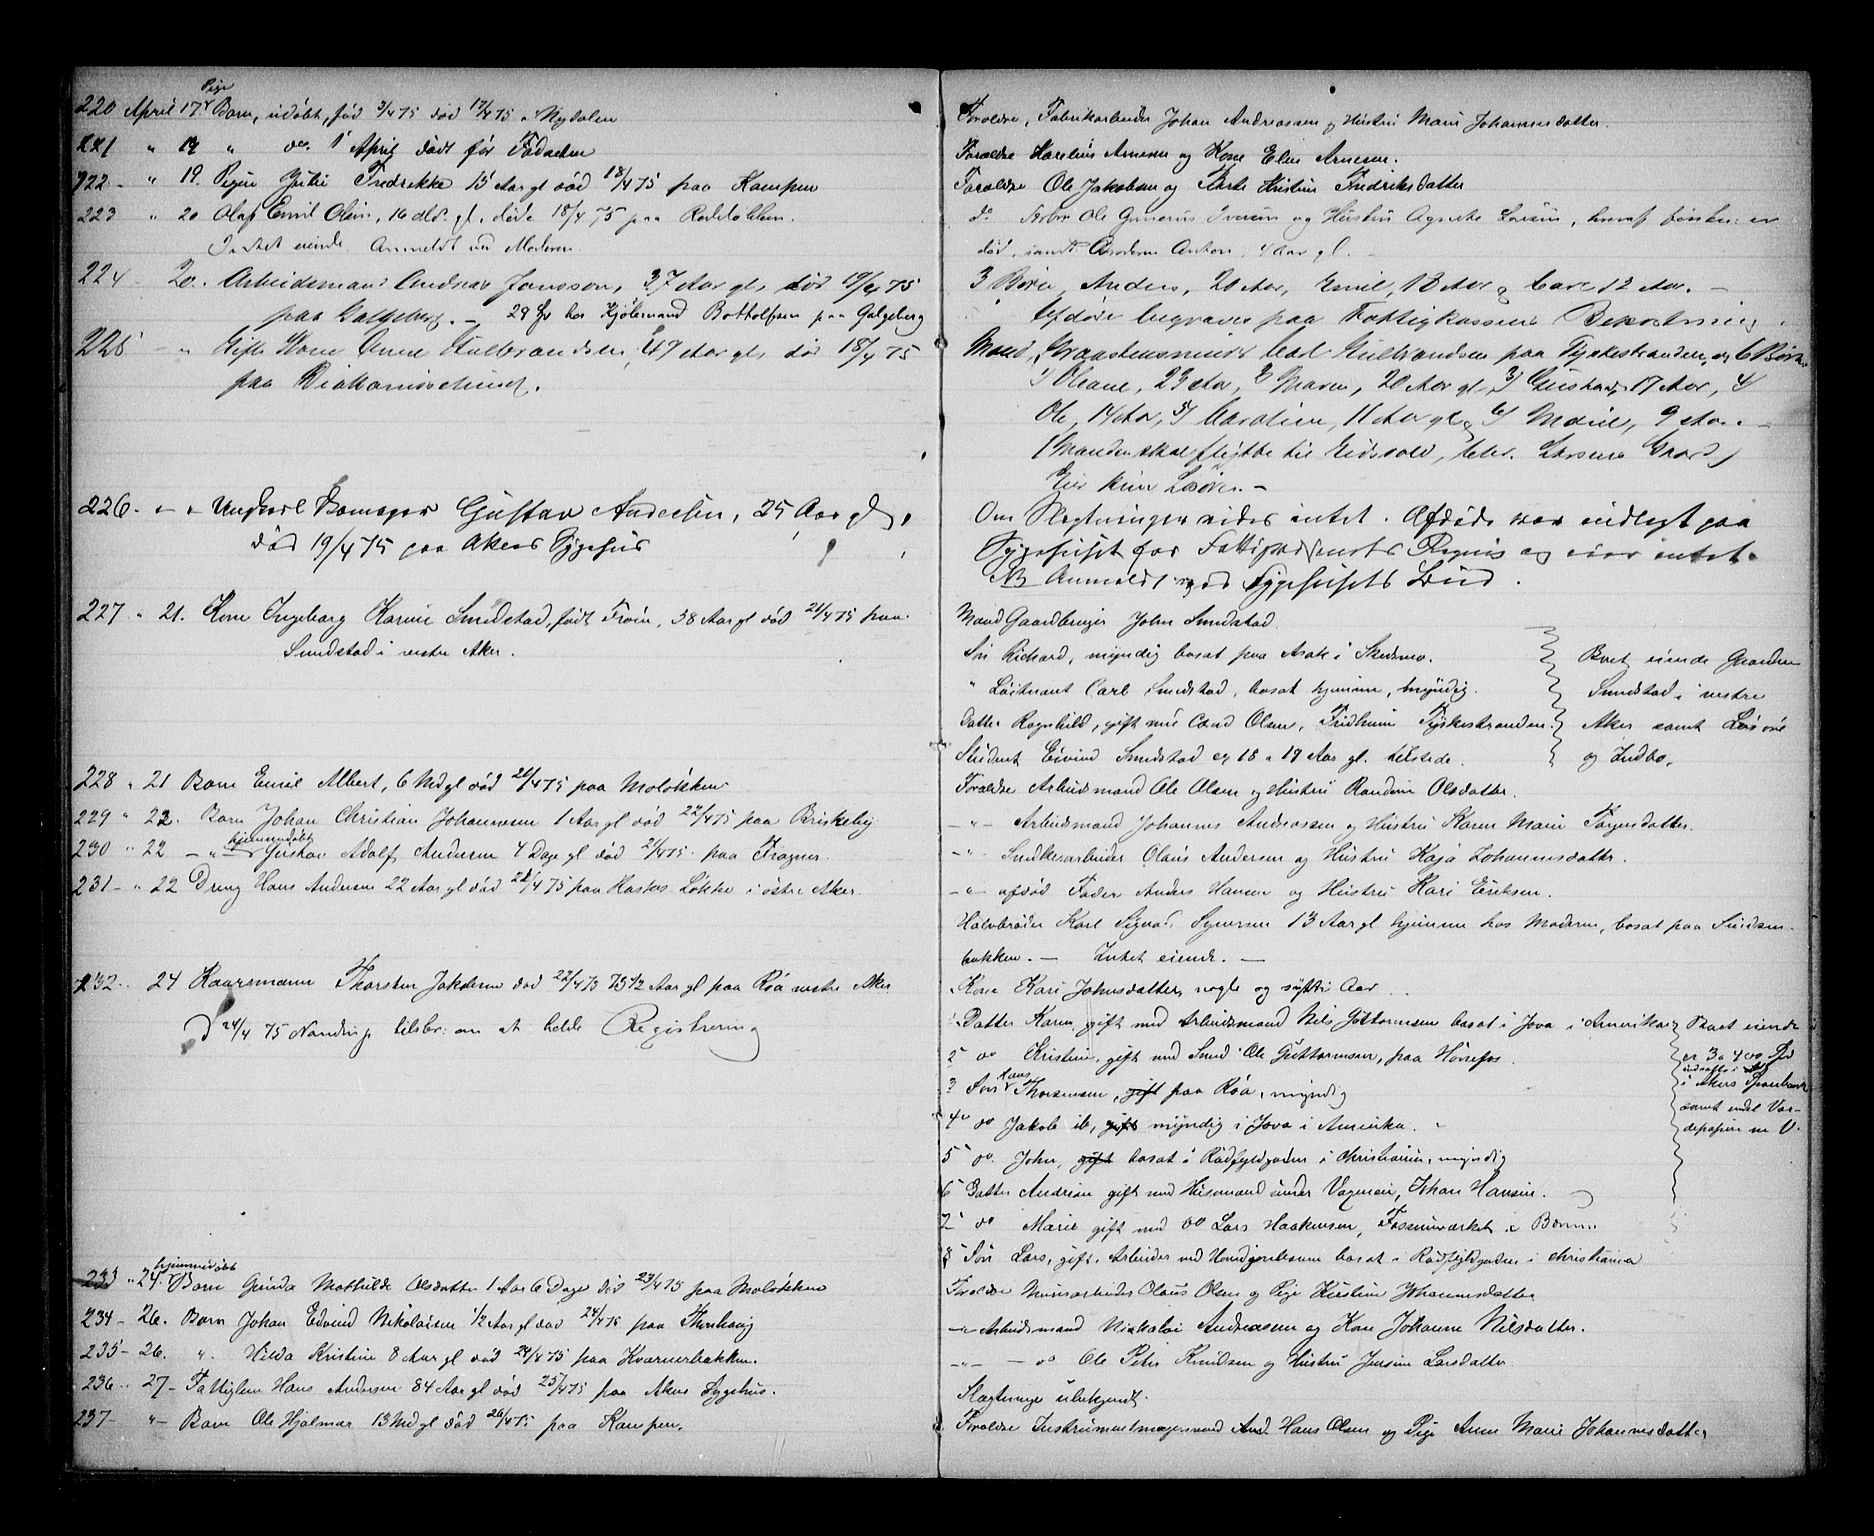 Pige
220 April 17. Barn, udøbt, fød 3/4 75 død 17/4 75 i Nydalen
221 " 19 " do. 1 April født før Fødselen
222 - " 19. Pigen Julie Fredrikke 15 Aar gl død 18/4 75 paa Kampen
223 " 20 Olaf Emil Olsen, 16 gl. døde 18/4 75 paa
Intet eiende. Anmeldt ved Moderen
224 - 20. Arbeidsmand Andreas Jonsson, 37 Aar gl, død 19/4 75
paa Galgeberg. - 29 hos Kjølemand Bottolfsen paa Galgeberg
225 - " Gift Kone Anne Gulbrandsen, 49 Aar gl, død 18/4 75
paa Diakonissehuset.
226 - " - " Ungkarl Gustav Andersen, 25 Aar gl,
død 19/4 75 paa Akers Sygehus
227 " 21. Kone Ingeborg Karine Smedstad, født Frøen, 58 Aar gl død 21/4 75 paa
Smedstad i vestre Aker.
228 " 21 Barn Emil Albert, 6 Md gl død 20/4 75 paa Moløkken
229 " 22. Barn Johan Christian Johannesen 1 Aar gl død 22/4 75 paa Briskeby
hjemmedøbt
230 " 22 - " - Gustav Adolf Andersen 4 Dage gl død 21/4 75 paa Frogner.
231 - " 22 Dreng Hans Andersen 22 Aar gl død 21/4 75 paa Løkke i østre Aker.
232 - 24 Kaarmann Thorsten Jakobsen død 22/4 75 75 1/2 Aar gl paa Røa vestre Aker
D 24/4 75 tilskr: om at holde Registrering
hjemmedøbt
233 " 24. Barn Gunda Mathilde Olsdatter 1 Aar 6 Dage død 23/4 75 paa Moløkken
234 - 26. Barn Johan Edvind Nikolaisen 1/2 Aar gl død 24/4 75 paa
235 - 26. " Hilda Kristine 8 Aar gl død 24/4 75 paa Kværnerbakken.
236 - 27 - Fattiglem Hans Andersen 84 Aar gl død 25/4 75 paa Akers Sygehus.
237 - " - Barn Ole Hjalmar 13 Md gl død 26/4 75 paa Kampen.
Forældre, Fabrikarbeider Johan Andreassen og Hustru Marie Johannesdatter.
Forældre Karelius Arnesen og Kone Elen Arnesen.
Forældre Ole Jakobsen og Kristine Fredriksdatter
do Ole Gunerius Iversen og Hustru Agnethe Larsen,
død, samt Broderen Anton, 4 Aar gl.
3 Børn, Anders, 20 Aar, Emil, 18 Aar og Carl 12 Aar. -
Afdøde begraves paa Fattigkassens Bekostning.
Mand, Graastensminer Carl Gulbrandsen paa Tyskestranden, og 6 Børn
1) Oleane, 23 Aar, 2) Maren, 20 Aar gl, 3) Gustav, 17 Aar, 4)
Ole, 14 Aar, 5) Caroline, 11 Aar gl og 6) Marie, 9 Aar. -
(Manden skal flytte til Eidsvold,
Eier kun Løsøre. -
Om Slegtninger vides intet. Afdøde var indlagt paa
Sygehuset for Fattigvæsenets Regning og eier intet.
NB Anmeldt ved Sygehusets Bud.
Mand Gaardbruger John Smedstad.
Søn Richard, myndig bosat paa i Skedsmo.
" Løitnant Carl Smedstad, bosat hjemme, myndig.
Datter Ragnhild, gift med Olsen, Fridheim Tyskestranden.
Student Eivind Smedstad er 18 a 19 Aar gl. tilstede.
Boet eiende Gaarden
Smedstad i vestre
Aker samt Løsøre
og Indbo.
Forældre Arbeidsmand Ole Olsen og Hustru Randine Olsdatter.
- " - Arbeidsmand Johannes Andreassen og Hustru Karen Marie Torgersdatter.
- " - Snedkerarbeider Olaus Andersen og Hustru Kaja Johannesdatter.
- " - afdød Fader Anders Hansen og Hustru Kari Eriksen.
Halvbroder Karl Sigvard Syversen 13 Aar gl hjemme hos Moderen, bosat paa
bakken. - Intet eiende. -
Kone Kari Johnsdatter, nogle og sytti Aar.
1 Datter Karen gift med Arbeidsmand Nils Guttormsen bosat i Jova i Amerika
2 do Kristine, gift med Smed Ole Guttormsen, paa Hønefos.
Hans
3 Søn Thorstensen, gift paa Røa, myndig
4 do Jakob ib, gift myndig i Jova i Amerika.
5 do. John, gift bosat i Rødfyldgaden i Christiania, myndig
6 Datter Andrine gift med Husmand under Johan Hansen.
7 do Marie gift med do Lars Haakensen, Fossumværket i Bærum
8 Søn Lars, gift, Arbeider ved bosat i Rødfyldgaden i Christiania
Boet eiende
er 3 a 400 Spd
indsatte i
i Akers Sparebank
samt endel Vær-
depapirer m V.
Forældre Murarbeider Olaus Olsen og Pige Kirstine Johannesdatter
- " - Arbeidsmand Nickolai Andreassen og Kone Johanne Nilsdatter.
- " - - do Ole Peter Knudsen og Hustru Larsdatter
Slægtninge ubekjendt.
Forældre Instrumentmagersvend Hans Olsen og Pige Anne Marie Johannesdatter